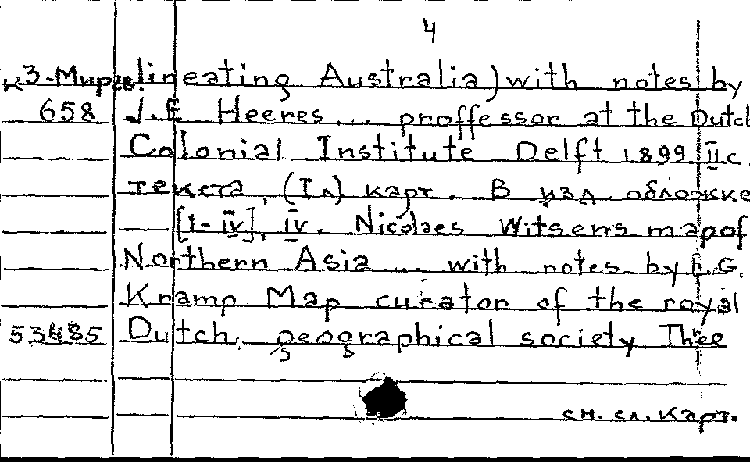 4
к3-Мироп. lineating Australia) with notes by
658 J.E Heeres ... proffessor at the Dutch
Colonial Institute Delft 1899. II с.
текста, (1л) карт. В изд обложке
[I-IV], IV. Nicolaes Witsens map of
Northern Asia ... with notes by F.G.
Kramp Map curator of the royal
53485 Dutch, geographical society Thee
см. сл. карт.